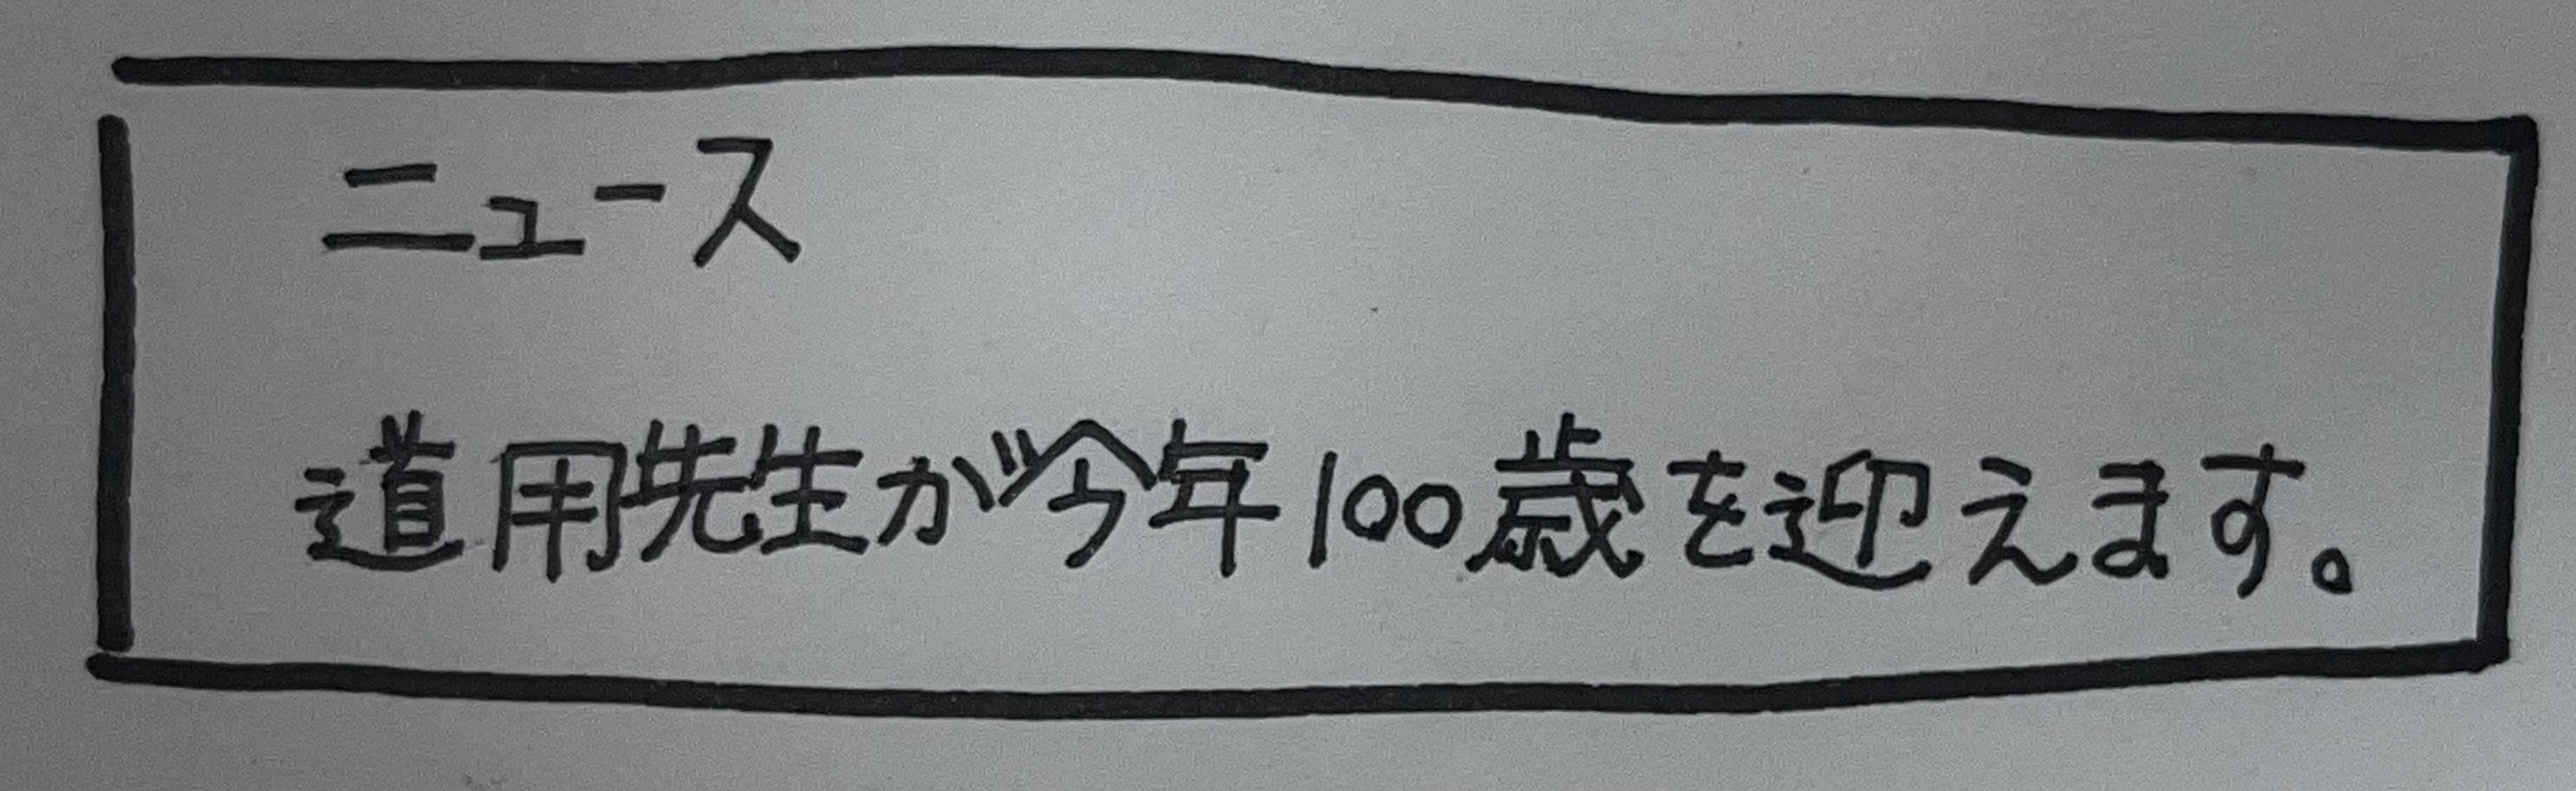 ニュース
道用先生が今年100歳を迎えます。